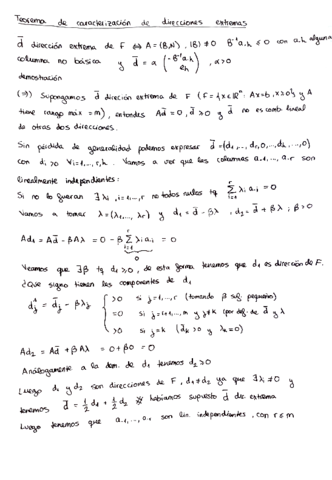 Teorema de caracterización de direcciones extremas
d̄ dirección extrema de F ⟺ A=(B,N), |B|≠0 B⁻¹a.k ≤ 0 con a.k alguna
columna no básica y d̄ = α (-B⁻¹a.k / eₖ), α>0
demostración
(⇒) Supongamos d̄ direción extrema de F (F={x∈ℝⁿ: Ax=b, x≥0} y A
tiene rango máx = m), entonces Ad̄=0, d̄≥0 y d̄ no es comb lineal
de otras dos direcciones.
Sin pérdida de generalidad podemos expresar d̄=(d₁,...,dᵣ,0,...,dₖ,...,0)
con dᵢ>0 ∀i=1,...,r,k. Vamos a ver que las columnas a.₁,...,a.r son
linealmente independientes:
Si no lo fueran ∃λᵢ, i=1,...,r no todos nulos tq ∑ᵢ₌₁ʳ λᵢaᵢ=0
Vamos a tomar λ=(λ₁,...,λᵣ) y d₁=d̄-βλ, d₂=d̄+βλ; β>0
Ad₁=Ad̄-βAλ=0-β∑ᵢ₌₁ʳ λᵢaᵢ=0
0
Veamos que ∃β tq d₁≥0, de esta forma tenemos que d₁ es dirección de F.
¿Que signo tienen las componentes de d₁
d₁ʲ=d̄ⱼ-βλⱼ { >0 si j=1,...,r (tomando β suf. pequeño)
=0 si j=r+1,...,m y j≠k (por def. de d̄ y λ
>0 si j=k (d̄ₖ>0 y λₖ=0)
Ad₂=Ad̄+βAλ=0+β0=0
Análogamente a la dem. de d₁ tenemos d₂≥0
Luego d₁ y d₂ son direcciones de F, d₁≠d₂ ya que ∃λᵢ≠0 y
tenemos d̄=½d₁+½d₂ habíamos supuesto d̄ dir. extrema
Luego tenemos que a.₁,...,a.r son lin independientes, con r≤m